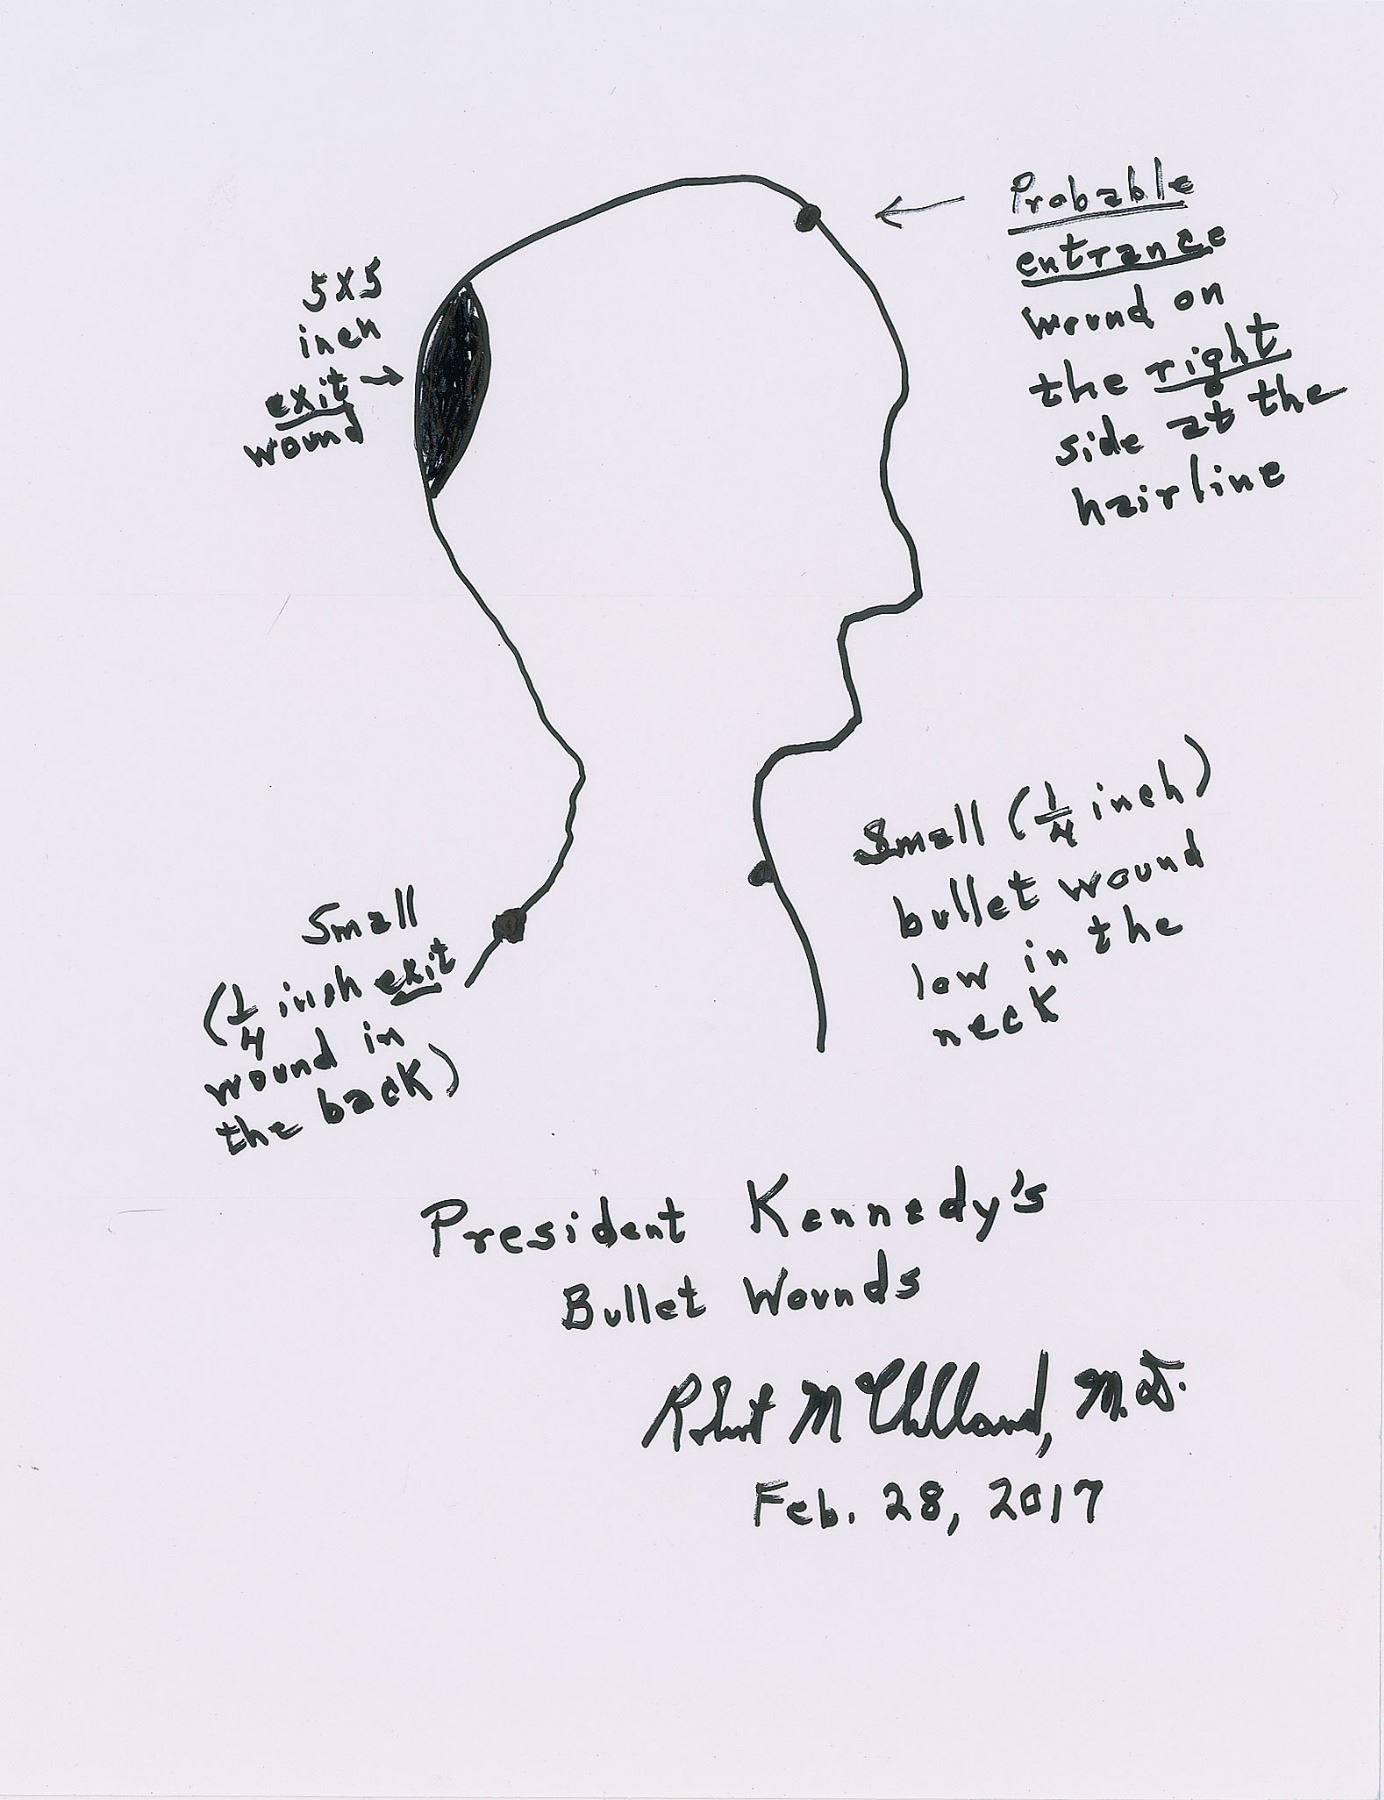 Probable
entrance
wound on
the right
side at the
hairline
5x5
inch
exit →
wound
Small (1/4 inch)
bullet wound
low in the
neck
Small
(1/4 inch exit
wound in
the back)
President Kennedy's
Bullet Wounds
Robert McClelland, M.D.
Feb. 28, 2017